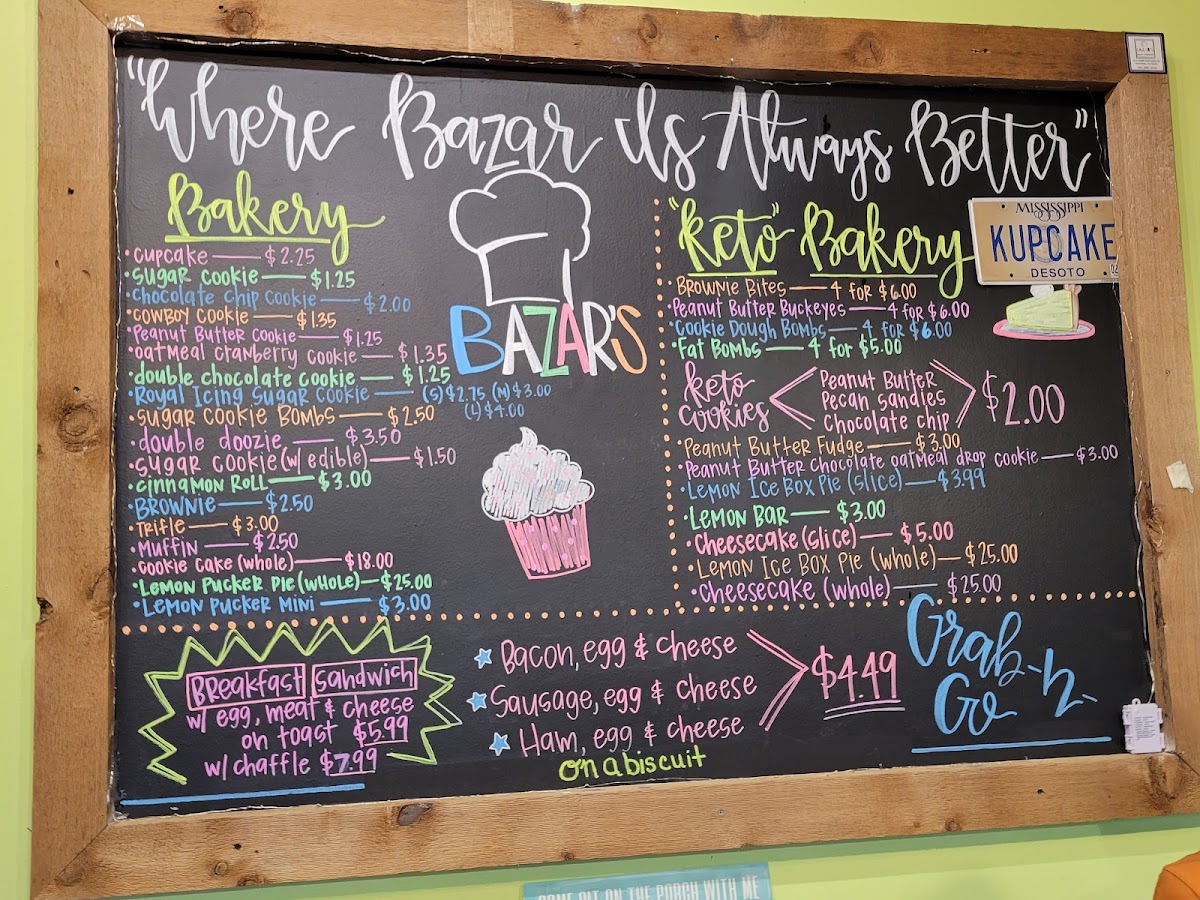 "Where Bazar Is Always Better"
Bakery
cupcake — $2.25
·sugar cookie — $1.25
·chocolate chip cookie — $2.00
·cowboy cookie — $1.35
·Peanut Butter cookie — $1.25
·oatmeal cranberry cookie — $1.35
·double chocolate cookie — $1.25
·Royal Icing sugar cookie — (S) $2.75 (M) $3.00
(L) $4.00
·sugar cookie Bombs — $2.50
·double doozie — $3.50
·sugar cookie (w/ edible) — $1.50
·cinnamon Roll — $3.00
·Brownie — $2.50
·Trifle — $3.00
·Muffin — $2.50
·cookie cake (whole) — $18.00
·Lemon Pucker Pie (whole) — $25.00
·Lemon Pucker Mini — $3.00
BAZAR'S
"Keto" Bakery
MISSISSIPPI
KUPCAKE
DESOTO
·Brownie Bites — 4 for $6.00
·Peanut Butter Buckeyes — 4 for $6.00
·Cookie Dough Bombs — 4 for $6.00
·Fat Bombs — 4 for $5.00
keto cookies
Peanut Butter
Pecan sandles
Chocolate chip
$2.00
·Peanut Butter Fudge — $3.00
·Peanut Butter chocolate oatmeal drop cookie — $3.00
·Lemon Ice Box Pie (slice) — $3.99
·Lemon Bar — $3.00
·Cheesecake (slice) — $5.00
·Lemon Ice Box Pie (whole) — $25.00
·Cheesecake (whole) — $25.00
Breakfast Sandwich
w/ egg, meat & cheese
on toast $5.99
w/ chaffle $7.99
Bacon, egg & cheese
Sausage, egg & cheese
Ham, egg & cheese
on a biscuit
$4.49
Grab-n-
Go
COME SIT ON THE PORCH WITH ME